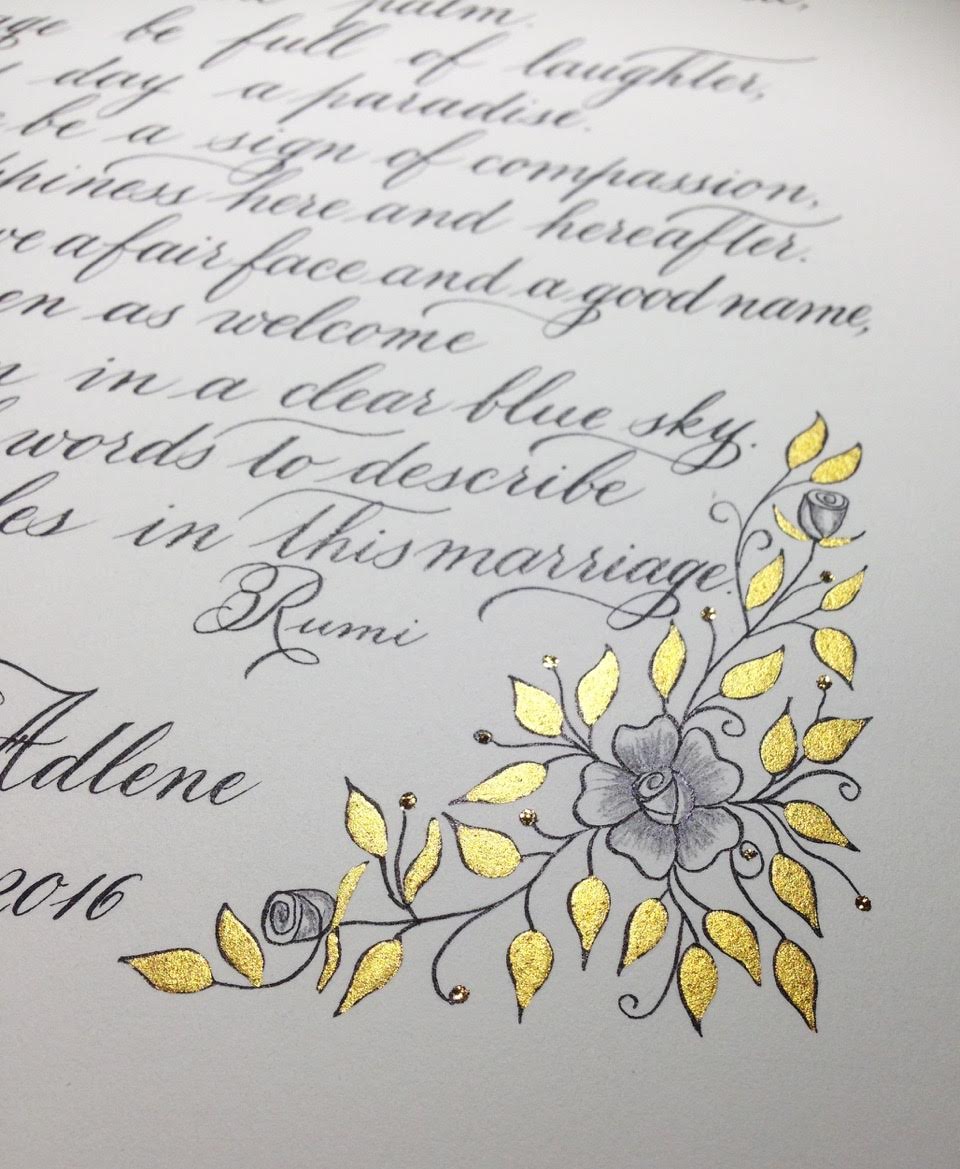 palm.
age be full of laughter,
day a paradise.
be a sign of compassion,
ppiness here and hereafter.
ve a fair face and a good name,
en as welcome
in a clear blue sky.
words to describe
les in this marriage.
Rumi
Adlene
2016